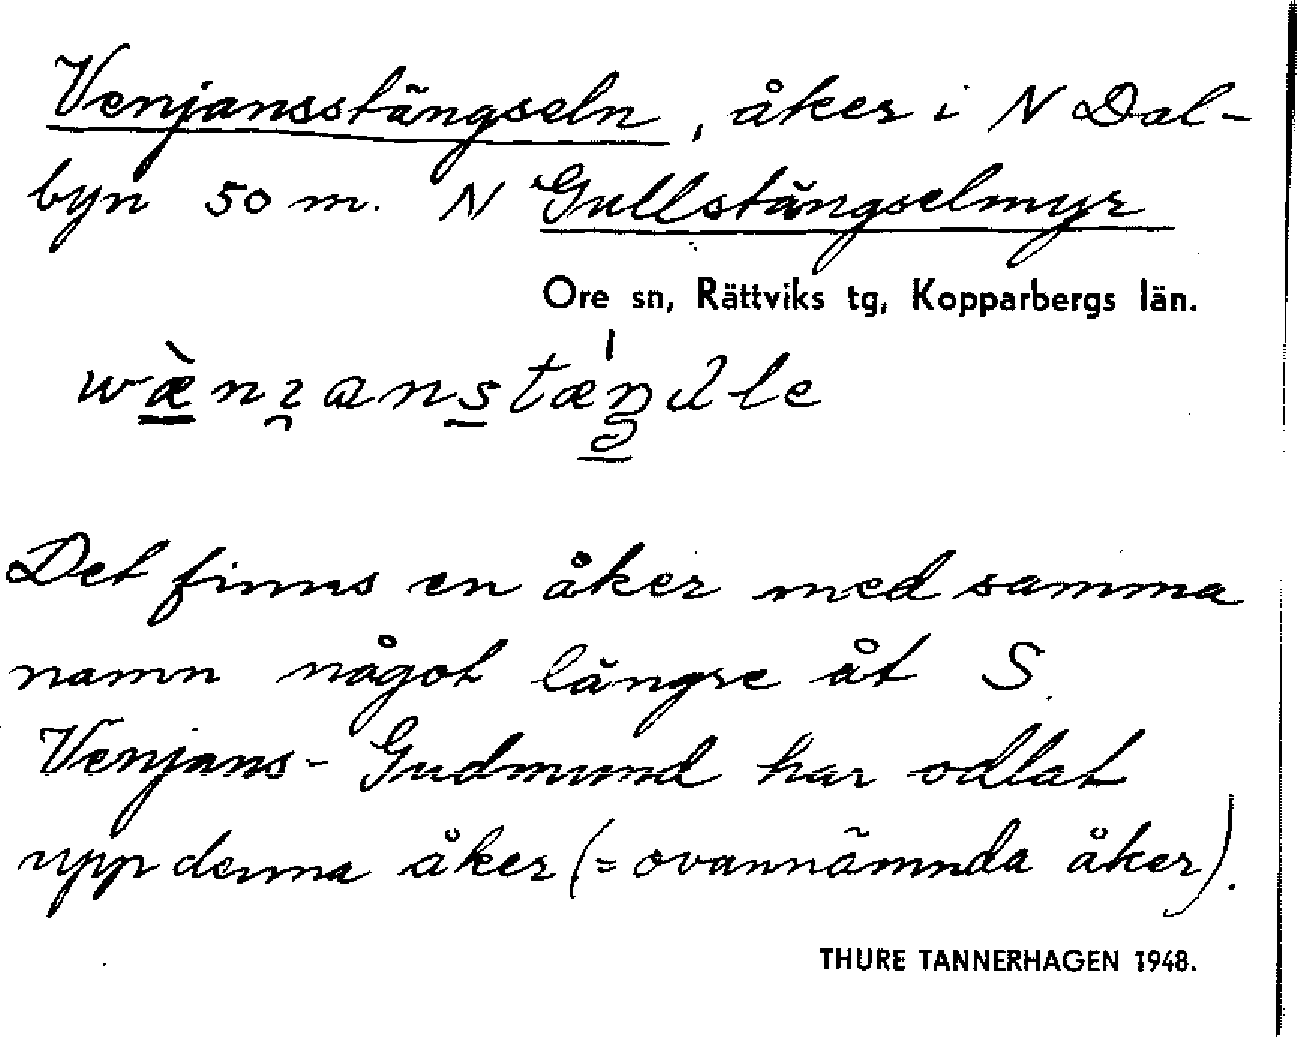 Venjansstängseln, åker i N Dal-
byn 50 m. N Gullstängselmyr
Ore sn, Rättviks tg, Kopparbergs län.
Det finns en åker med samma
namn något längre åt S.
Venjans-Gudmund har odlat
upp denna åker (= ovannämnda åker).
THURE TANNERHAGEN 1948.